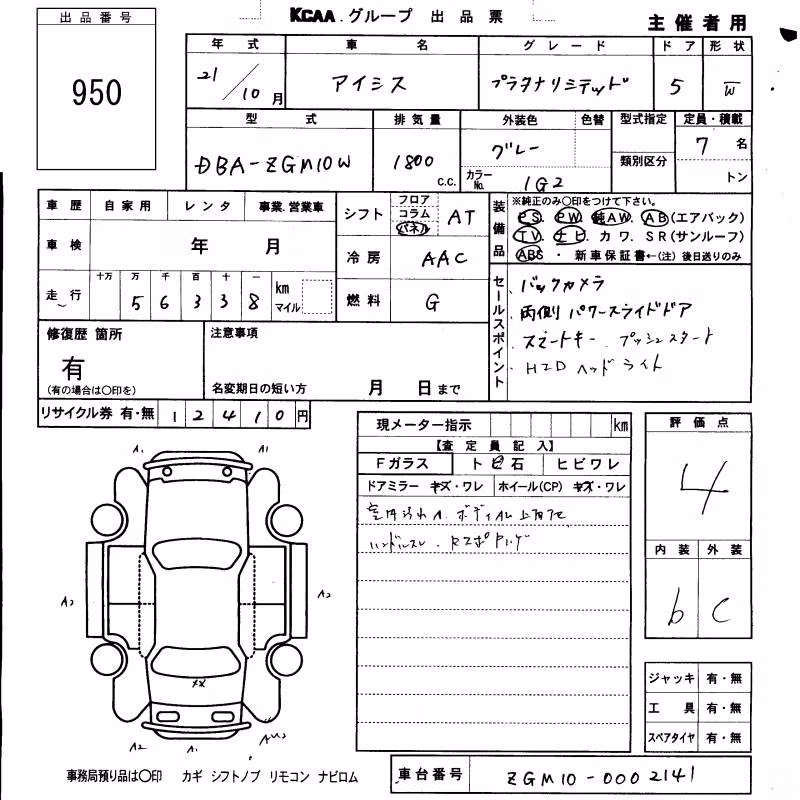 KCAA グループ 出品票
主催者用
出品番号
950
年式 車名 グレード ドア 形状
21/10月 アイシス プラタナリミテッド 5 W
型式 排気量 外装色 色替 型式指定 定員・積載
DBA-ZGM10W 1800 c.c. グレー 類別区分 7 名
カラーNo. 1G2 トン
車歴 自家用 レンタ 事業.営業車
車検 年 月
走行 十万 万 千 百 十 一
5 6 3 3 8 km マイル
シフト フロア コラム パネル AT
冷房 AAC
燃料 G
装備品 ※純正のみ〇印をつけて下さい。
PS. PW. 純AW. AB(エアバック)
TV. ナビ. カワ. SR(サンルーフ)
ABS ・ 新車保証書←(注)後日送りのみ
セールスポイント
バックカメラ
両側パワースライドドア
スマートキー プッシュスタート
HID ヘッドライト
修復歴 箇所
有
(有の場合は〇印を)
注意事項
名変期日の短い方 月 日まで
リサイクル券 有・無 12410円
現メーター指示 km
【査定員記入】
Fガラス トビ石 ヒビワレ
ドアミラー キズ・ワレ ホイール(CP) キズ・ワレ
ハンドルスレ
評価点
4
内装 外装
b C
A1 A1
A2 A2
XX
A2 A1
ジャッキ 有・無
工具 有・無
スペアタイヤ 有・無
事務局預り品は〇印 カギ シフトノブ リモコン ナビロム
車台番号 ZGM10-0002141